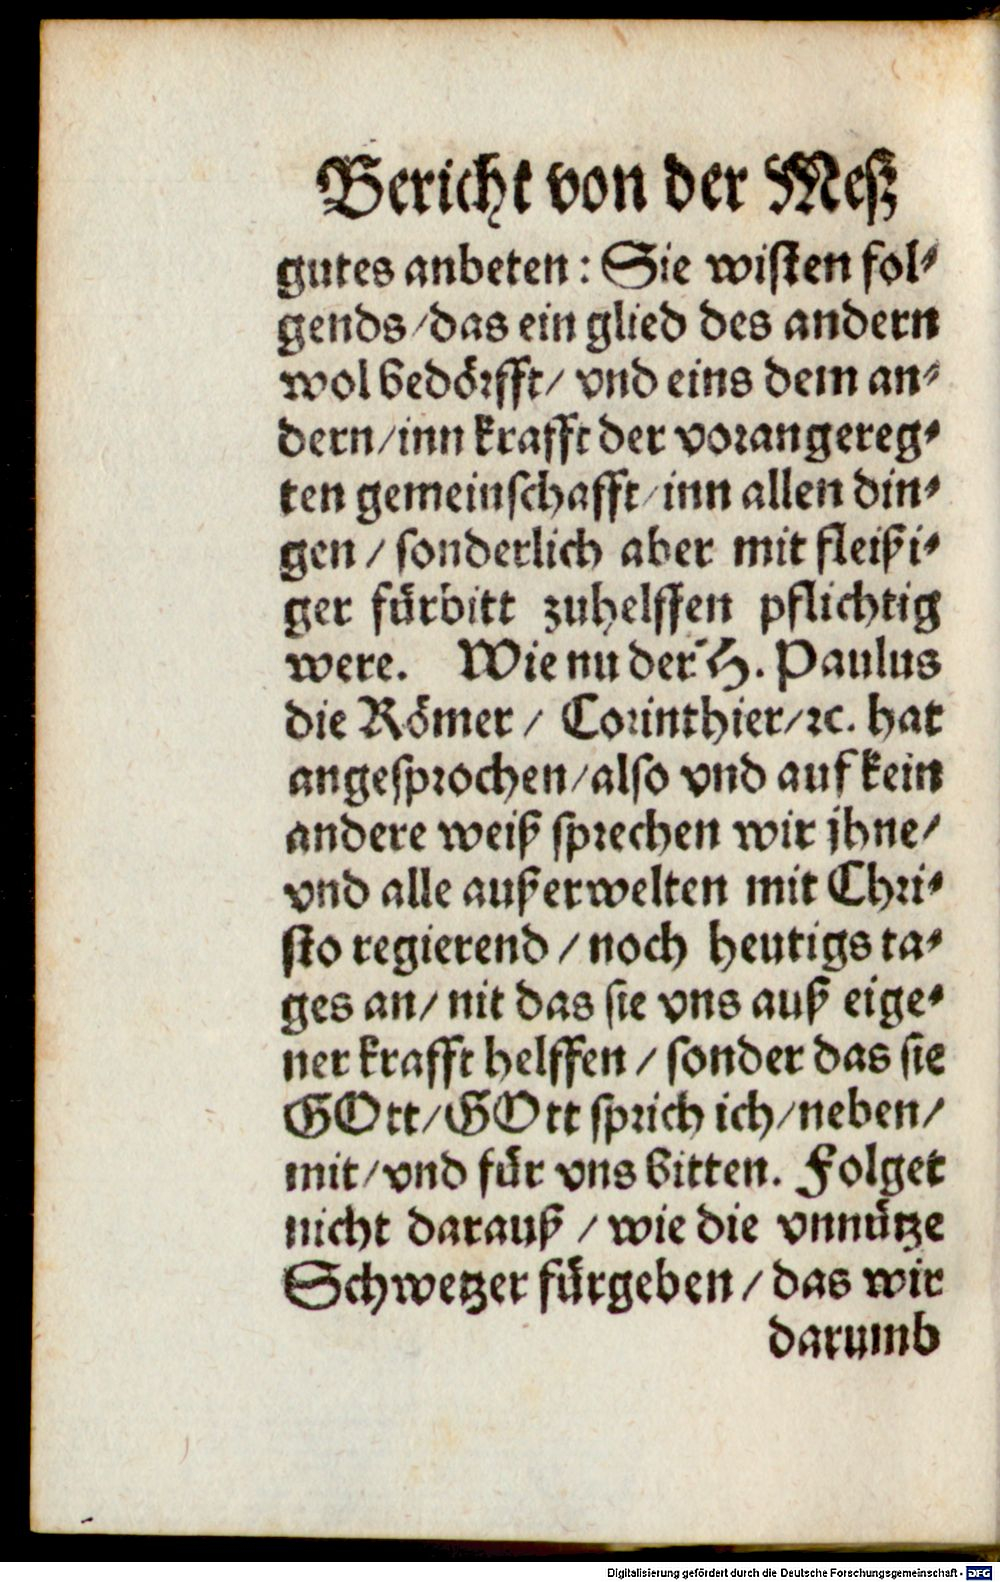 Bericht von der Meß
gutes anbeten: Sie wisten fol⸗
gends/das ein glied des andern
wol bedörfft/ vnd eins dem an⸗
dern/inn krafft der vorangereg⸗
ten gemeinschafft/inn allen din⸗
gen / sonderlich aber mit fleißi⸗
ger fürbitt zuhelffen pflichtig
were. Wie nu der H. Paulus
die Römer / Corinthier/ꝛc. hat
angesprochen/also vnd auf kein
andere weiß sprechen wir jhne/
vnd alle außerwelten mit Chri⸗
sto regierend / noch heutigs ta⸗
ges an/ nit das sie vns auß eige⸗
ner krafft helffen / sonder das sie
GOtt/GOtt sprich ich/neben/
mit/vnd für vns bitten. Folget
nicht darauß / wie die vnnütze
Schwetzer fürgeben / das wir
darumb
Digitalisierung gefördert durch die Deutsche Forschungsgemeinschaft - DFG